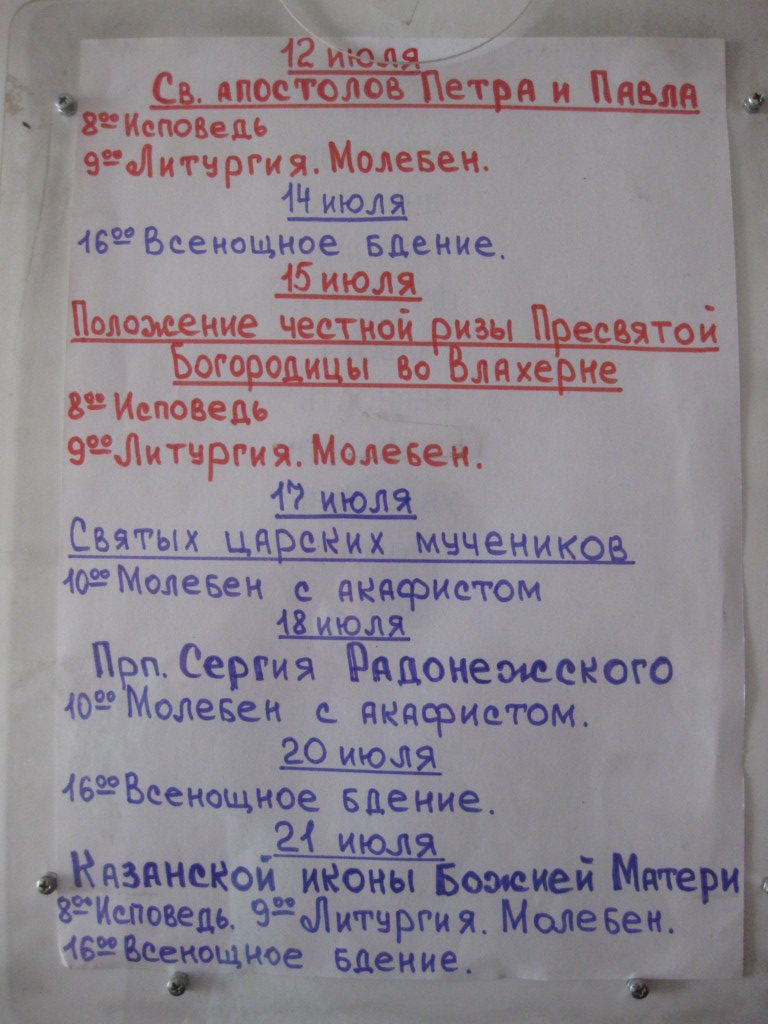 12 июля
Св. апостолов Петра и Павла
8⁰⁰ Исповедь
9⁰⁰ Литургия. Молебен.
14 июля
16⁰⁰ Всенощное бдение.
15 июля
Положение честной ризы Пресвятой
Богородицы во Влахерне
8⁰⁰ Исповедь
9⁰⁰ Литургия. Молебен.
17 июля
Святых царских мучеников
10⁰⁰ Молебен с акафистом
18 июля
Прп. Сергия Радонежского
10⁰⁰ Молебен с акафистом.
20 июля
16⁰⁰ Всенощное бдение.
21 июля
Казанской иконы Божией Матери
8⁰⁰ Исповедь. 9⁰⁰ Литургия. Молебен.
16⁰⁰ Всенощное бдение.